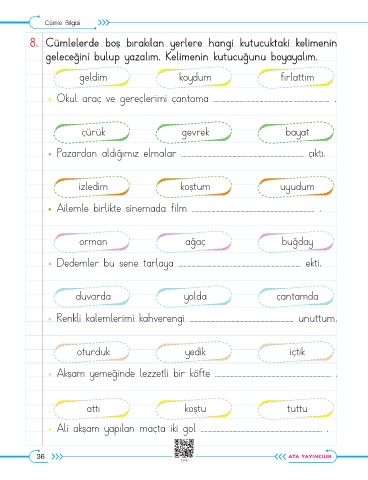 Cümle Bilgisi
8. Cümlelerde boş bırakılan yerlere hangi kutucuktaki kelimenin
geleceğini bulup yazalım. Kelimenin kutucuğunu boyayalım.
geldim koydum fırlattım
• Okul araç ve gereçlerimi çantama .
çürük gevrek bayat
• Pazardan aldığımız elmalar çıktı.
izledim koştum uyudum
• Ailemle birlikte sinemada film .
orman ağaç buğday
• Dedemler bu sene tarlaya ekti.
duvarda yolda çantamda
• Renkli kalemlerimi kahverengi unuttum.
oturduk yedik içtik
• Akşam yemeğinde lezzetli bir köfte .
attı koştu tuttu
• Ali akşam yapılan maçta iki gol .
36 ATA YAYINCILIK